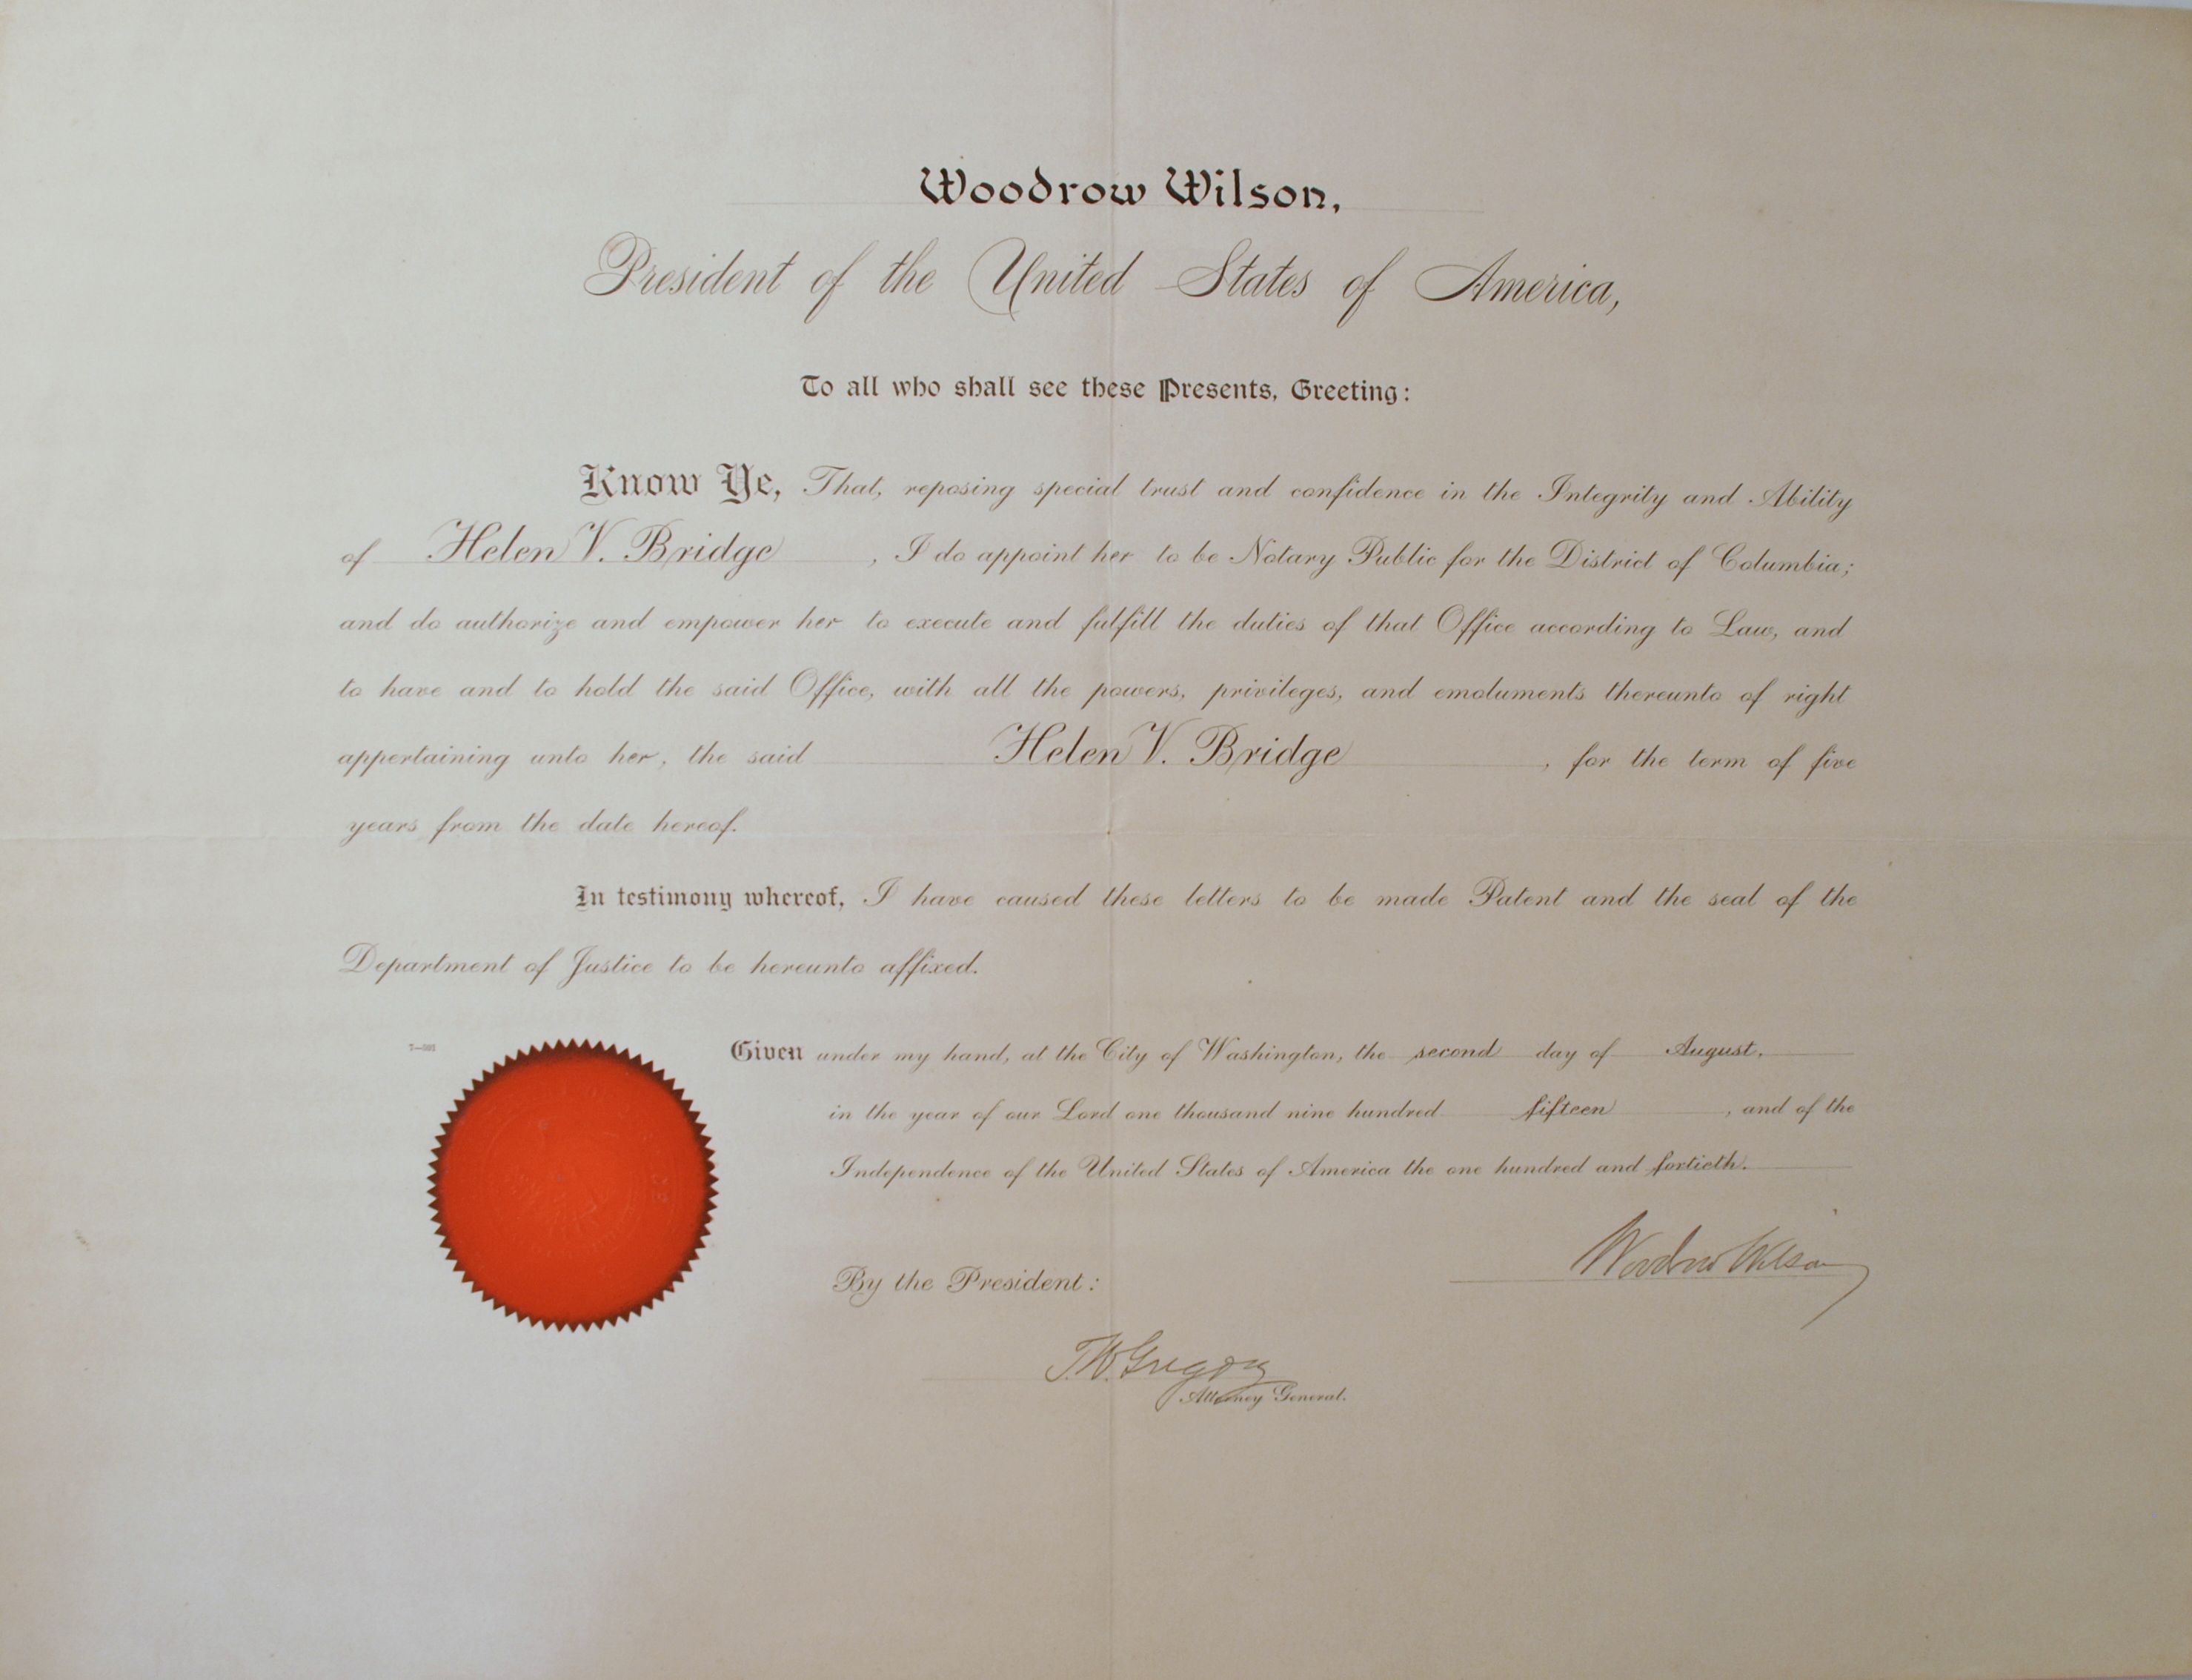 Woodrow Wilson,
President of the United States of America,
To all who shall see these Presents, Greeting:
Know Ye, That, reposing special trust and confidence in the Integrity and Ability
of Helen V. Bridge, I do appoint her to be Notary Public for the District of Columbia;
and do authorize and empower her to execute and fulfill the duties of that Office according to Law, and
to have and to hold the said Office, with all the powers, privileges, and emoluments thereunto of right
appertaining unto her, the said Helen V. Bridge, for the term of five
years from the date hereof.
In testimony whereof, I have caused these letters to be made Patent and the seal of the
Department of Justice to be hereunto affixed.
Given under my hand, at the City of Washington, the second day of August,
in the year of our Lord one thousand nine hundred fifteen, and of the
Independence of the United States of America the one hundred and fortieth.
Woodrow Wilson
By the President:
T.W. Gregory
Attorney General.